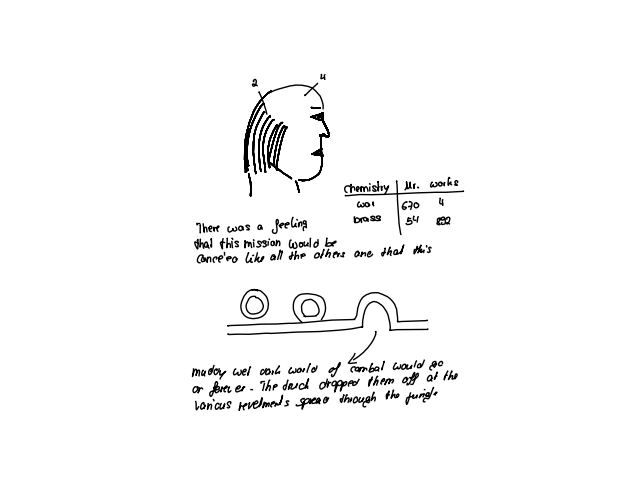 2 4
Chemistry Mr. works
war 670 4
brass 54 892
There was a feeling
that this mission would be
cance'ed like all the others and that this
muddy wet dark world of combat would go
on forever. The truck dropped them off at the
various revetments spread through the jungle